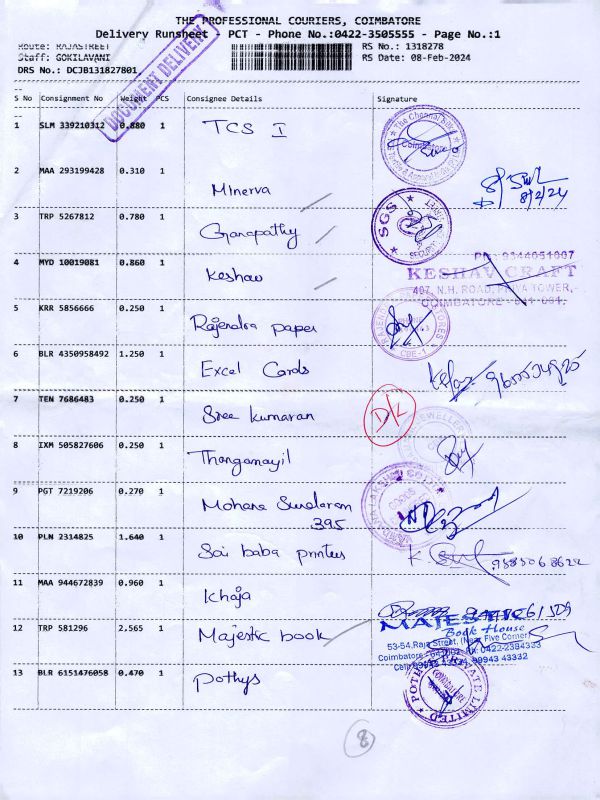 THE PROFESSIONAL COURIERS, COIMBATORE
Delivery Runsheet - PCT - Phone No.:0422-3505555 - Page No.:1
Route: RAJASTREET RS No.: 1318278
Staff: GOKILAVANI RS Date: 08-Feb-2024
DRS No.: DCJB131827801
DOCUMENT DELIVERY
S No Consignment No Weight PCS Consignee Details Signature
1 SLM 339210312 0.880 1 TCS I
The Chennai Silks
Coimbatore
2 MAA 293199428 0.310 1 Minerva
8/2/24
3 TRP 5267812 0.780 1 Ganapathy
SGS
SECURITY
4 MYD 10019081 0.860 1 Keshav
PH: 9344051007
KESHAV CRAFT
407, N.H. ROAD, PRIYA TOWER,
COIMBATORE - 641 001.
5 KRR 5856666 0.250 1 Rajendra paper
CBE-1
6 BLR 4350958492 1.250 1 Excel Cards
7 TEN 7686483 0.250 1 Sree Kumaran
D/L
JEWELLER
8 IXM 505827606 0.250 1 Thangamayil
9 PGT 7219206 0.270 1 Mohana Sundaram
395
10 PLN 2314825 1.640 1 Sai baba printers
11 MAA 944672839 0.960 1 Khaja
12 TRP 581296 2.565 1 Majestic book
MAJESTIC
Book House
53-54, Raja Street, (Near Five Corner)
Coimbatore - Ph: 0422-2384333
Cell: 99943 43332
13 BLR 6151476058 0.470 1 Pothys
POTHYS PRIVATE LIMITED
COIMBATORE
8